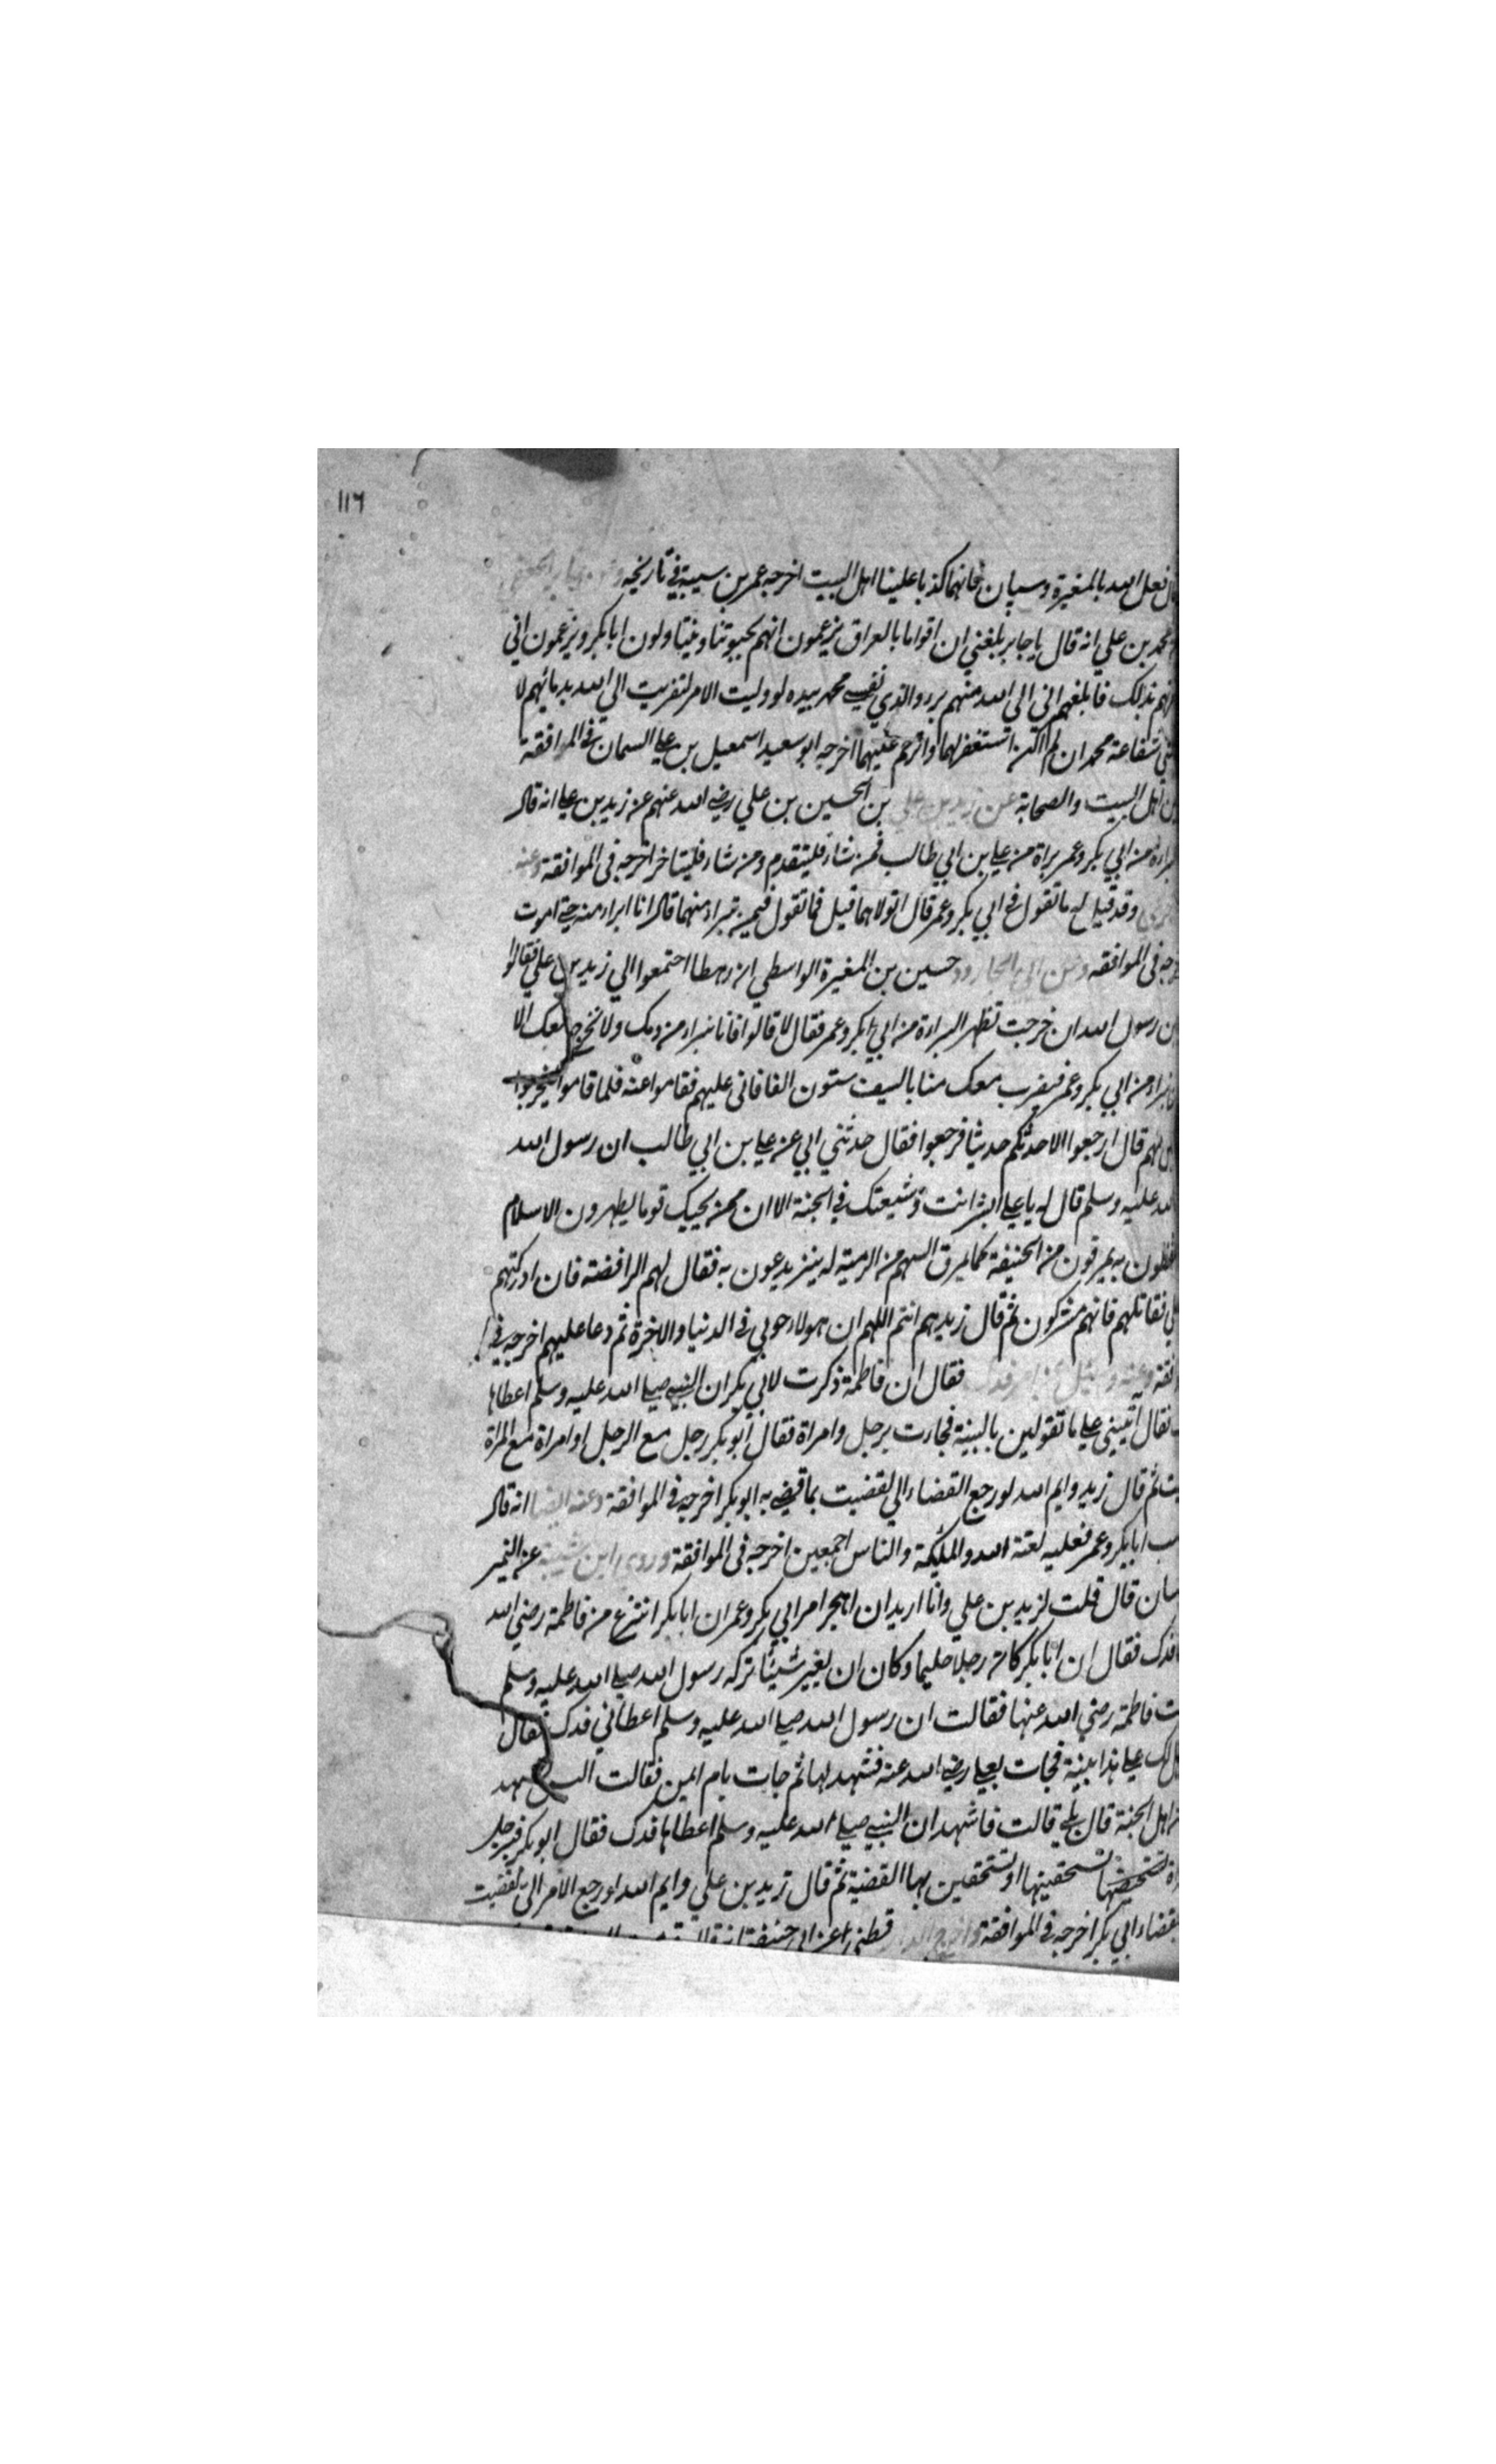 ١١٦
فعل الله بالمغيرة وسيان فانهما كذبا علينا اهل البيت اخرجه عمر بن سيبة في تاريخه
محمد بن علي انه قال يا جابر بلغني ان اقواما بالعراق يزعمون انهم يحبوننا ويتناولون ابا بكر ويزعمون اني
بذلك فابلغهم اني الى الله منهم برء والذي نفسي محمد بيده لو وليت الامر لتقربت الى الله بدمائهم لا
شفاعة محمد ان لم اكن استغفر لهما واترحم عليهما اخرجه ابو سعيد اسمعيل بن علي السمان في الموافقة
اهل البيت والصحابة عن زيد بن علي بن الحسين بن علي رضي الله عنهم عن زيد بن علي انه قال
من ابي بكر وعمر براة من علي بن ابي طالب فمن شاء فليتقدم ومن شاء فليتاخر اخرجه في الموافقة وعنه
وقد قيل له ما تقول في ابي بكر وعمر قال اتولاهما قيل فما تقول فيمن تبراء منهما قال انا ابراء منه حتى اموت
في الموافقه وعن ابي الجارود حسين بن المغيرة الواسطي ان رهطا اجتمعوا الي زيد بن علي فقالوا
رسول الله ان خرجت تظهر البراءة من ابي بكر وعمر فقال لا قالوا فانا نبراء من دمك ولا نخرج معك الا
من ابي بكر وعمر فيضرب معك منا بالسيف ستون الفا فاتى عليهم فقاموا عنه فلما قاموا ليخرجوا
لهم قال ارجعوا الا احدثكم حديثا فرجعوا فقال حدثني ابي عن علي بن ابي طالب ان رسول الله
عليه وسلم قال له يا علي ابشر انت وشيعتك في الجنة الا ان ممن يحبك قوما يظهرون الاسلام
به يمرقون من الحنيفة كما يمرق السهم من الرمية له ينز يدعون به فقال لهم الرافضة فان ادركتهم
فقاتلهم فانهم مشركون ثم قال زيد هم انتم اللهم ان هولاء حوبي في الدنيا والاخرة ثم دعا عليهم اخرجه في
فقال ان فاطمة ذكرت لابي بكر ان النبي صلى الله عليه وسلم اعطاها
فقال ائتيني على ما تقولين بالبينة فجاءت برجل وامراة فقال ابو بكر رجل مع الرجل او امراة مع المراة
ثم قال زيد وايم الله لو رجع القضاء الي لقضيت بما قضى به ابو بكر اخرجه في الموافقة وعنه ايضا انه قال
ابا بكر وعمر فعليه لعنة الله والمليكة والناس اجمعين اخرجه في الموافقة وروى ابن شيبة عن النمير
قال قلت لزيد بن علي وانا اريد ان اهجر امر ابي بكر وعمر ان ابا بكر انتزع من فاطمة رضي الله
فدك فقال ان ابا بكر كان رجلا حليما وكان ان يغير شيئا تركه رسول الله صلى الله عليه وسلم
فاطمة رضي الله عنها فقالت ان رسول الله صلى الله عليه وسلم اعطاني فدك فقال
لك على هذا بينة فجات بعلي رضي الله عنه فشهد لها ثم جات بام ايمن فقالت
اهل الجنة قال بلى قالت فاشهد ان النبي صلى الله عليه وسلم اعطاها فدك فقال ابو بكر فبرجل
تستحقينها او تستحقين بها القضية ثم قال زيد بن علي وايم الله لو رجع الامر الي لقضيت
بقضاء ابي بكر اخرجه في الموافقة واخرج الدار قطني عن ابي حنيفة